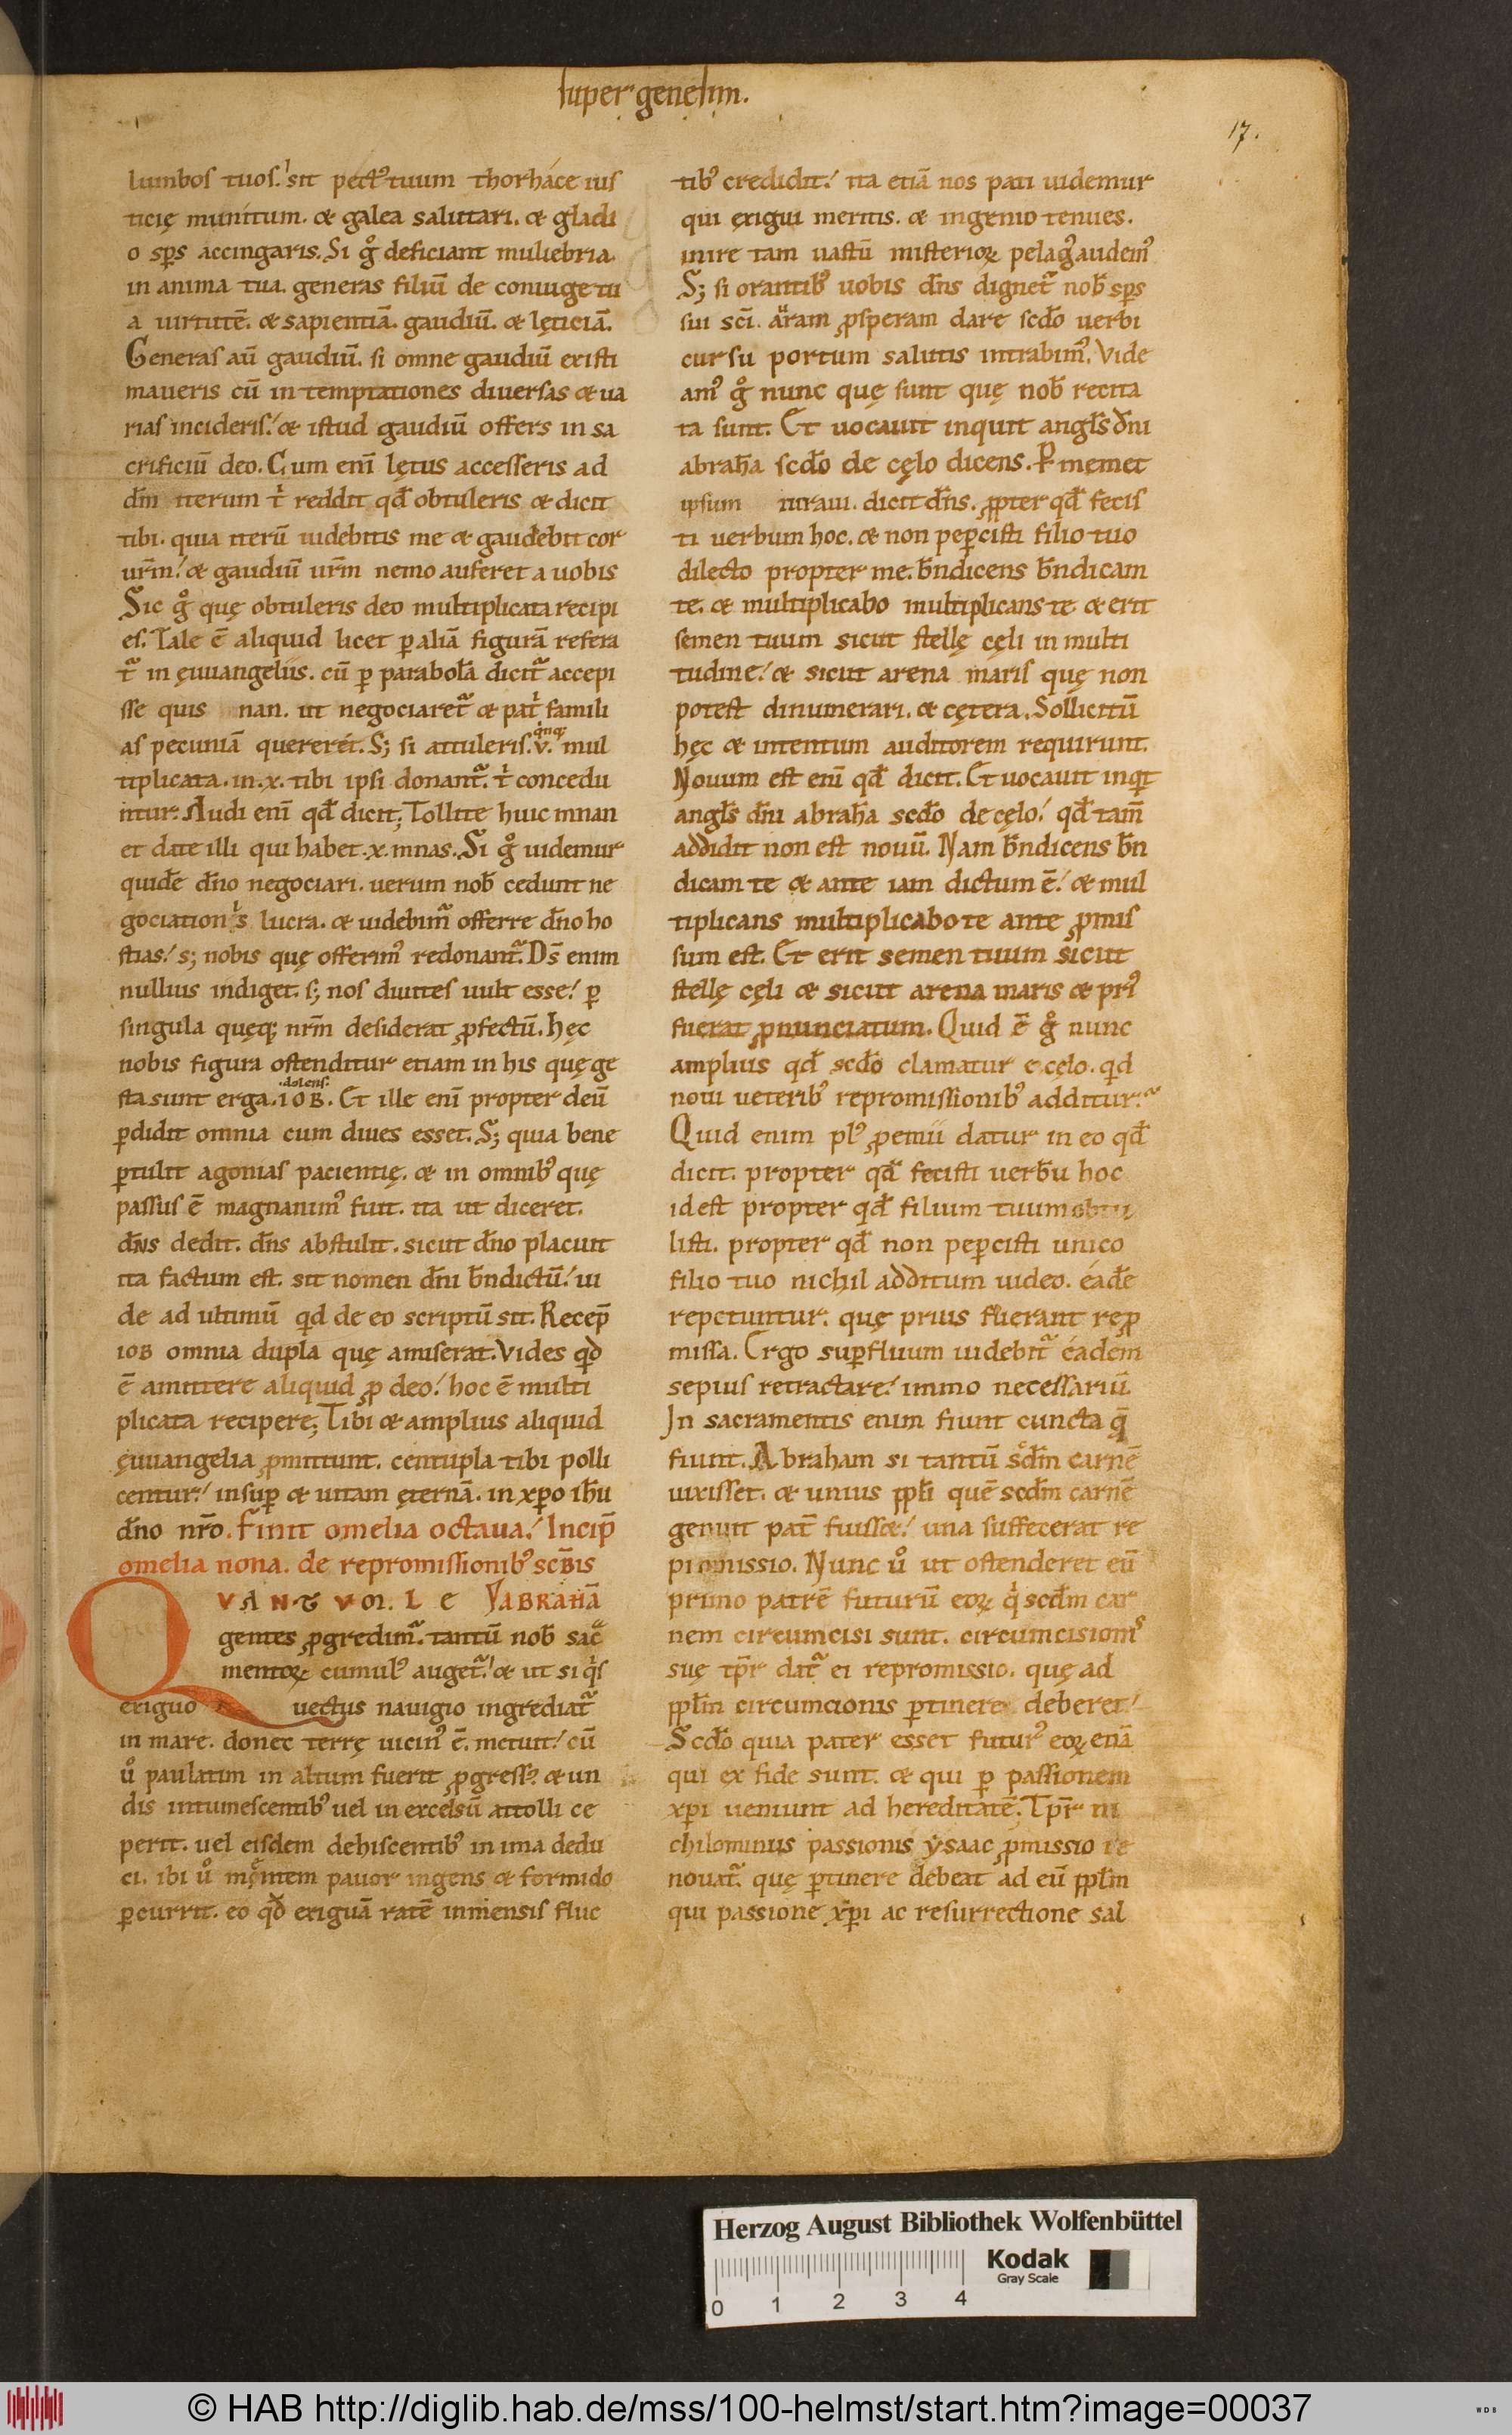 super genesim.
17.
lumbos tuos. sit pect᷒ tuum thorháce ius
ticię munitum. & galea salutari. & gladi
o sp̅s accingaris. Si gͦ deficiant muliebria
in anima tua. generas filiū de coniuge tu
a uirtutē. & sapientiā. gaudiū. & lęticiā.
Generas aū gaudiū. si omne gaudiū existi
maueris cū in temptationes diuersas & ua
rias incideris. & istud gaudiū offers in sa
crificiū deo. Cum eni̅ lętus accesseris ad
dm̅ iterum t̍ reddit qd̅ obtuleris & dicit
tibi. quia iterū uidebitis me & gaudebit cor
urm̅. & gaudiū urm̅ nemo auferet a uobis
Sic gͦ quę obtuleris deo multiplicata recipi
es. Tale ē aliquid licet ꝑ aliā figurā refera
t᷑ in ęuuangeliis. cū ꝑ parabolā dicit᷑ accepi
sse quis mnan. ut negociaret᷑ & pat̍ famili
as pecuniā quereret. S; si attuleris .v. mul
tiplicata. in .x. tibi ipsi donant᷑. t̍ concedu
ntur. Audi eni̅ qd̅ dicit; Tollite huic mnan
et date illi qui habet .x. mnas. Si gͦ uidemur
quidē dn̅o negociari. uerum nob̅ cedunt ne
gociation̍s lucra. & uidebim᷑ offerre dn̅o ho
stias. s; nobis quę offerim᷒ redonant᷑. Ds̅ enim
nullius indiget. s; nos diuites uult esse. ꝑ
singula quęq; nrm̅ desiderat ꝓfectū. hęc
nobis figura ostenditur etiam in his quę ge
dolens
sta sunt erga .IOB. Et ille eni̅ propter deū
ꝑdidit omnia cum diues esset. S; quia bene
ꝑtulit agonias pacientię. & in omnib᷒ quę
passus ē magnanim᷒ fuit. ita ut diceret.
dn̅s dedit. dn̅s abstulit. sicut dn̅o placuit
ita factum est. sit nomen dn̅i bn̅dictū. ui
de ad ultimū qd̅ de eo scriptū sit. Recep̅
IOB omnia dupla quę amiserat. Vides qd̅
ē amittere aliquid ꝓ deo. hoc ē multi
plicata recipere; Tibi & amplius aliquid
ęuuangelia ꝓmittunt. centupla tibi polli
centur. insuꝑ & uitam ęternā. in xp̅o ih̅u
dn̅o nr̅o. Finit omelia octaua. Incip̅
omelia nona. de repromissionib᷒ scd̅is
QVANTVM LEGABRAHĀ
gentes ꝓgredim᷑. tantū nob̅ sac̅
mentoꝝ cumul᷒ auget᷑. & ut si q̍s
exiguo uectus nauigio ingrediat᷑
in mare. donec terrę uicin᷒ ē. metuit. cū
uͦ paulatim in altum fuerit ꝓgress᷒. & un
dis intumescentib᷒ uel in excelsū attolli ce
perit. uel eisdem dehiscentib᷒ in ima dedu
ci. ibi uͦ mentem pauor ingens & formido
ꝑcurrit. eo qd̅ exiguā ratē inmensis fluc
tib᷒ credidit. ita etiā nos pati uidemur
qui exigui meritis. & ingenio tenues.
inire tam uastū misterioꝝ pelag᷒ audem᷒
S; si orantib᷒ uobis dn̅s dignet᷑ nob̅ sp̅s
sui sci̅. auram ꝓsperam dare scd̅o uerbi
cursu portum salutis intrabim᷒. Vide
am᷒ gͦ nunc quę sunt quę nob̅ recita
ta sunt. Et uocauit inquit angl̅s dn̅i
abrah̅a scd̅o de cęlo dicens. Ꝑ memet
ipsum iuraui. dicit dn̅s. ꝓpter qd̅ fecis
ti uerbum hoc. & non peꝑcisti filio tuo
dilecto propter me. bn̅dicens bn̅dicam
te. & multiplicabo multiplicans te. & erit
semen tuum sicut stellę cęli in multi
tudine. & sicut arena maris quę non
potest dinumerari. & cętera. Sollicitū
hęc & intentum auditorem requirunt.
Nouum est eni̅ qd̅ dicit. Et uocauit inqt
angl̅s dn̅i abrah̅a scd̅o de cęlo. qd̅ tam̅
addidit non est nouū. Nam bn̅dicens bn̅
dicam te & ante iam dictum ē. & mul
tiplicans multiplicabo te ante ꝓmis
sum est. Et erit semen tuum sicut
stellę cęli & sicut arena maris & pri᷒
fuerat ꝓnunciatum. Quid ē gͦ nunc
amplius qd̅ scd̅o clamatur e cęlo. qid
noui ueterib᷒ repromissionib᷒ additur.
Quid enim pl᷒ ꝓemii datur in eo qd̅
dicit. propter qd̅ fecisti uerbu hoc
id est propter qd̅ filium tuum obtu
listi. propter qd̅ non peꝑcisti unico
filio tuo nichil additum uideo. éadē
repetuntur. quę prius fuerant reꝓ
missa. Ergo suꝑfluum uidebit᷑ éadem
sepius retractare. immo necessariū.
In sacramentis enim fiunt cuncta q̄
fiunt. Abraham si tantū scd̅m carnē
uixisset. & unius ppl̅i quē scd̅m carnē
genuit pat̅ fuisset. una suffecerat re
promissio. Nunc uͦ ut ostenderet eū
primo patrē futurū eoꝝ q̍ scd̅m car
nem circumcisi sunt. circumcisionis
suę tp̅r dat᷑ ei repromissio. quę ad
ppl̅m circumcionis ꝑtinere deberet.
Scd̅o quia pater esset futur᷒ eoꝝ etiā
qui ex fide sunt. & qui ꝑ passionem
xp̅i ueniunt ad hereditatē. Tp̅r ni
chilominus passionis ysaac ꝓmissio re
nouat᷑. quę ꝑtinere debeat ad eū ppl̅m
qui passione xp̅i ac resurrectione sal
Herzog August Bibliothek Wolfenbüttel
Kodak
Gray Scale
0 1 2 3 4
© HAB http://diglib.hab.de/mss/100-helmst/start.htm?image=00037
WDB